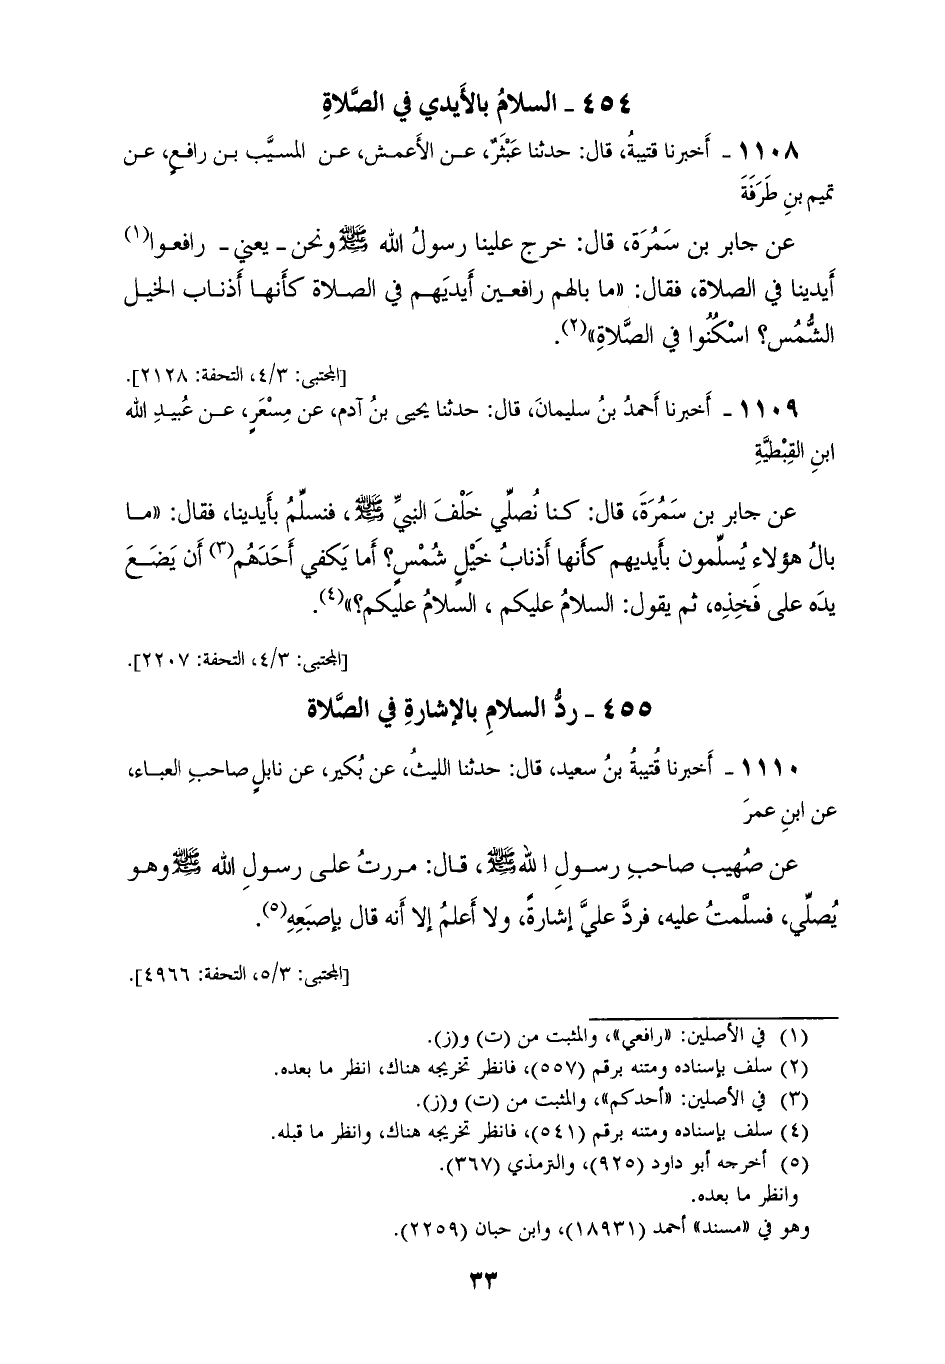 ٤٥٤ ـ السلامُ بالأَيدي في الصَّلاةِ
١١٠٨ ـ أَخبرنا قتيبةُ، قال: حدثنا عَبْثَرٌ، عـن الأَعمش، عـن المسيَّب بـن رافـعٍ، عـن
تميم بنِ طَرَفَةَ
عن جابر بن سَمُرَة، قال: خرج علينا رسولُ الله ﷺ ونحن ـ يعني ـ رافعـوا(١)
أَيدينا في الصلاة، فقال: «ما بالهم رافعـين أَيديَهـم في الصـلاة كأَنهـا أَذنـاب الخيـل
الشُّمُس؟ اسْكُنُوا في الصَّلاةِ»(٢).
[المجتبى: ٤/٣، التحفة: ٢١٢٨].
١١٠٩ ـ أَخبرنا أَحمدُ بنُ سليمانَ، قال: حدثنا يحيى بنُ آدم، عن مِسْعَرٍ، عـن عُبيـدِ الله
ابنِ القِبْطيَّةِ
عن جابر بن سَمُرَةَ، قال: كـنا نُصلِّي خَلْفَ النبيِّ ﷺ، فنسلِّمُ بأَيدينا، فقال: «مـا
بالُ هؤلاء يُسلِّمون بأَيديهم كأَنها أَذنابُ خَيْلٍ شُمْسٍ؟ أَما يَكفي أَحَدَهُم(٣) أَن يَضَـعَ
يدَه على فَخِذِه، ثم يقول: السلامُ عليكم ، السلامُ عليكم؟»(٤).
[المجتبى: ٤/٣، التحفة: ٢٢٠٧].
٤٥٥ ـ ردُّ السلامِ بالإشارةِ في الصَّلاة
١١١٠ ـ أَخبرنا قُتيبةُ بنُ سعيد، قال: حدثنا الليثُ، عن بُكير، عن نابلٍ صاحبِ العبـاء،
عن ابنِ عمرَ
عن صُهيب صاحبِ رسـولِ الله ﷺ، قـال: مـررتُ علـى رسـولِ الله ﷺ وهـو
يُصلِّي، فسلَّمتُ عليه، فردَّ عليَّ إشارةً، ولا أَعلمُ إلا أنه قال بإصبَعِهِ(٥).
[المجتبى: ٥/٣، التحفة: ٤٩٦٦].
(١) في الأصلين: «رافعي»، والمثبت من (ت) و(ز).
(٢) سلف بإسناده ومتنه برقم (٥٥٧)، فانظر تخريجه هناك، انظر ما بعده.
(٣) في الأصلين: «أحدكم»، والمثبت من (ت) و(ز).
(٤) سلف بإسناده ومتنه برقم (٥٤١)، فانظر تخريجه هناك، وانظر ما قبله.
(٥) أخرجه أبو داود (٩٢٥)، والترمذي (٣٦٧).
وانظر ما بعده.
وهو في «مسند» أحمد (١٨٩٣١)، وابن حبان (٢٢٥٩).
٣٣